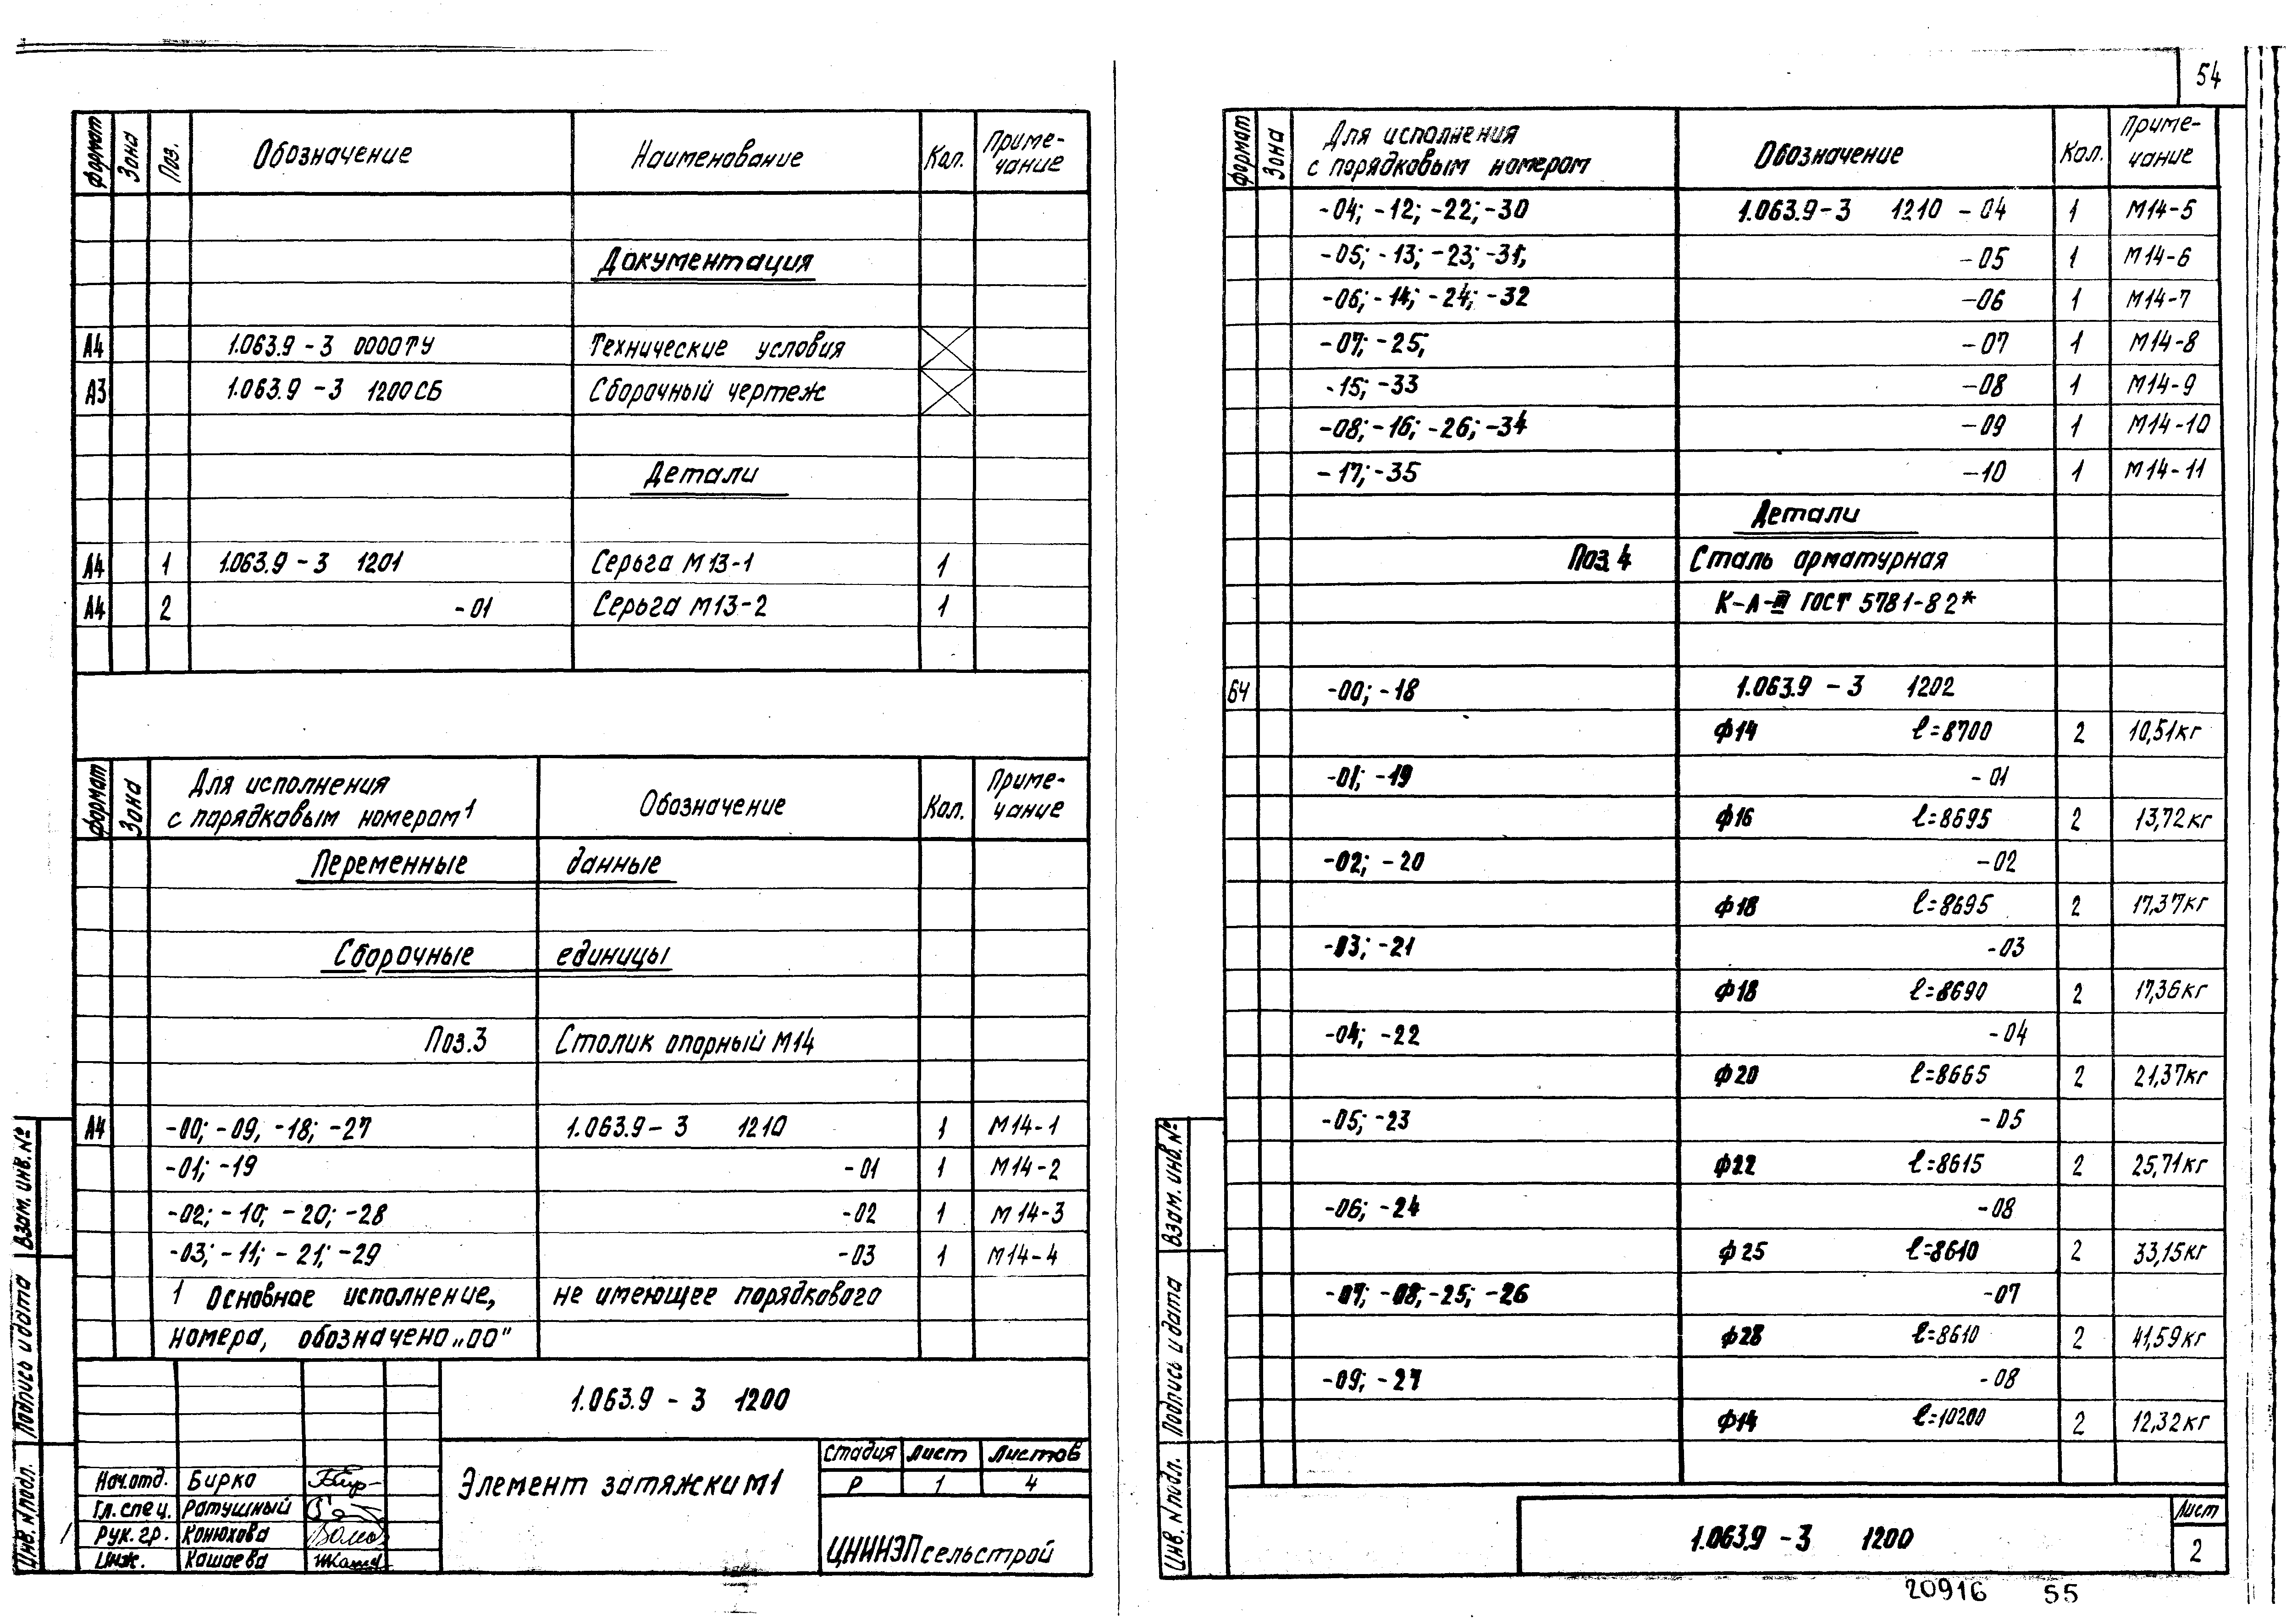 Формат Зона Поз. Обозначение Наименование Кол. Приме-
чание
Документация
А4 1.063.9-3 0000ТУ Технические условия
А3 1.063.9-3 1200СБ Сборочный чертеж
Детали
А4 1 1.063.9-3 1201 Серьга М13-1 1
А4 2 -01 Серьга М13-2 1
Формат Зона Для исполнения
с порядковым номером¹ Обозначение Кол. Приме-
чание
Переменные данные
Сборочные единицы
Поз.3 Столик опорный М14
А4 -00; -09, -18; -27 1.063.9-3 1210 1 М14-1
-01; -19 -01 1 М14-2
-02; -10; -20; -28 -02 1 М14-3
-03; -11; -21; -29 -03 1 М14-4
1 Основное исполнение, не имеющее порядкового
номера, обозначено „00"
1.063.9-3 1200
Элемент затяжки М1
Стадия Лист Листов
Р 1 4
ЦНИИЭПсельстрой
Нач.отд. Бирко
Гл.спец. Ратушный
Рук.гр. Конюхова
Инж. Кашаева
Взам. инв. №
Подпись и дата
Инв. № подл.
54
Формат Зона Для исполнения
с порядковым номером Обозначение Кол. Приме-
чание
-04; -12; -22; -30 1.063.9-3 1210 -04 1 М14-5
-05; -13; -23; -31; -05 1 М14-6
-06; -14; -24; -32 -06 1 М14-7
-07; -25; -07 1 М14-8
-15; -33 -08 1 М14-9
-08; -16; -26; -34 -09 1 М14-10
-17; -35 -10 1 М14-11
Детали
Поз.4 Сталь арматурная
К-А-III ГОСТ 5781-82*
БЧ -00; -18 1.063.9-3 1202
ф14 ℓ=8700 2 10,51кг
-01; -19 -01
ф16 ℓ=8695 2 13,72кг
-02; -20 -02
ф18 ℓ=8695 2 17,37кг
-03; -21 -03
ф18 ℓ=8690 2 17,36кг
-04; -22 -04
ф20 ℓ=8665 2 21,37кг
-05; -23 -05
ф22 ℓ=8615 2 25,71кг
-06; -24 -08
ф25 ℓ=8610 2 33,15кг
-07; -08; -25; -26 -07
ф28 ℓ=8610 2 41,59кг
-09; -27 -08
ф14 ℓ=10200 2 12,32кг
1.063.9-3 1200
Лист
2
Взам. инв. №
Подпись и дата
Инв. № подл.
20916 55